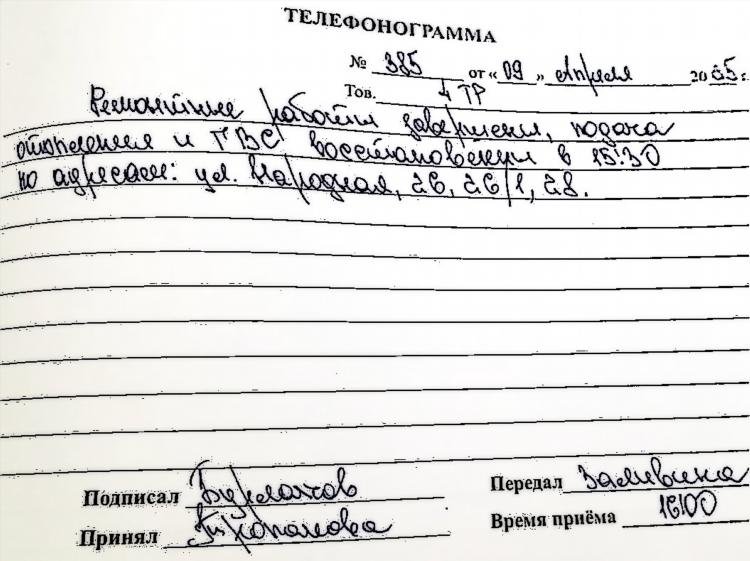 ТЕЛЕФОНОГРАММА
№ 385 от « 09 » Апреля 2025 г.
Тов. ЧТР
Ремонтные работы завершены, подача
отопления и ГВС восстановлены в 15:30
по адресам: ул. Народная, 26, 26/1, 28.
Подписал Бурлаков
Передал Заливина
Принял
Время приёма 16:00